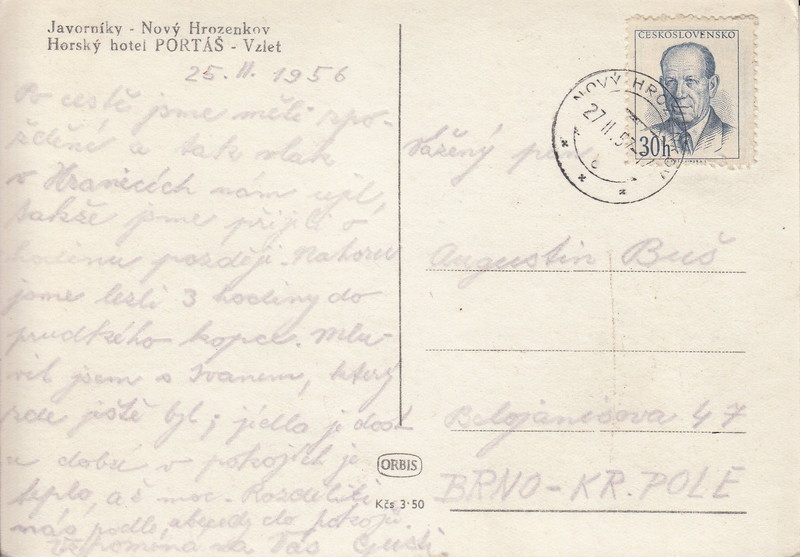 Javorníky - Nový Hrozenkov
Horský hotel PORTÁŠ - Vzlet
25. II. 1956
Po cestě jsme měli zpo-
ždění a tak vlak
v Hranicích nám ujel,
takže jsme přijeli o
hodinu později. Nahoru
jsme lezli 3 hodiny do
prudkého kopce. Mlu-
vil jsem s Ivanem, který
zde ještě byl; jídla je dost
a dobré v pokojích je
teplo, až moc. Rozdělili
nás podle abecedy do pokojů
Vzpomíná na Vás
ORBIS
Kčs 3·50
ČESKOSLOVENSKO
30h
NOVÝ HROZENKOV
27.II.5
Vážený pan
Augustin Buš
Belojanisova 47
BRNO - KR. POLE